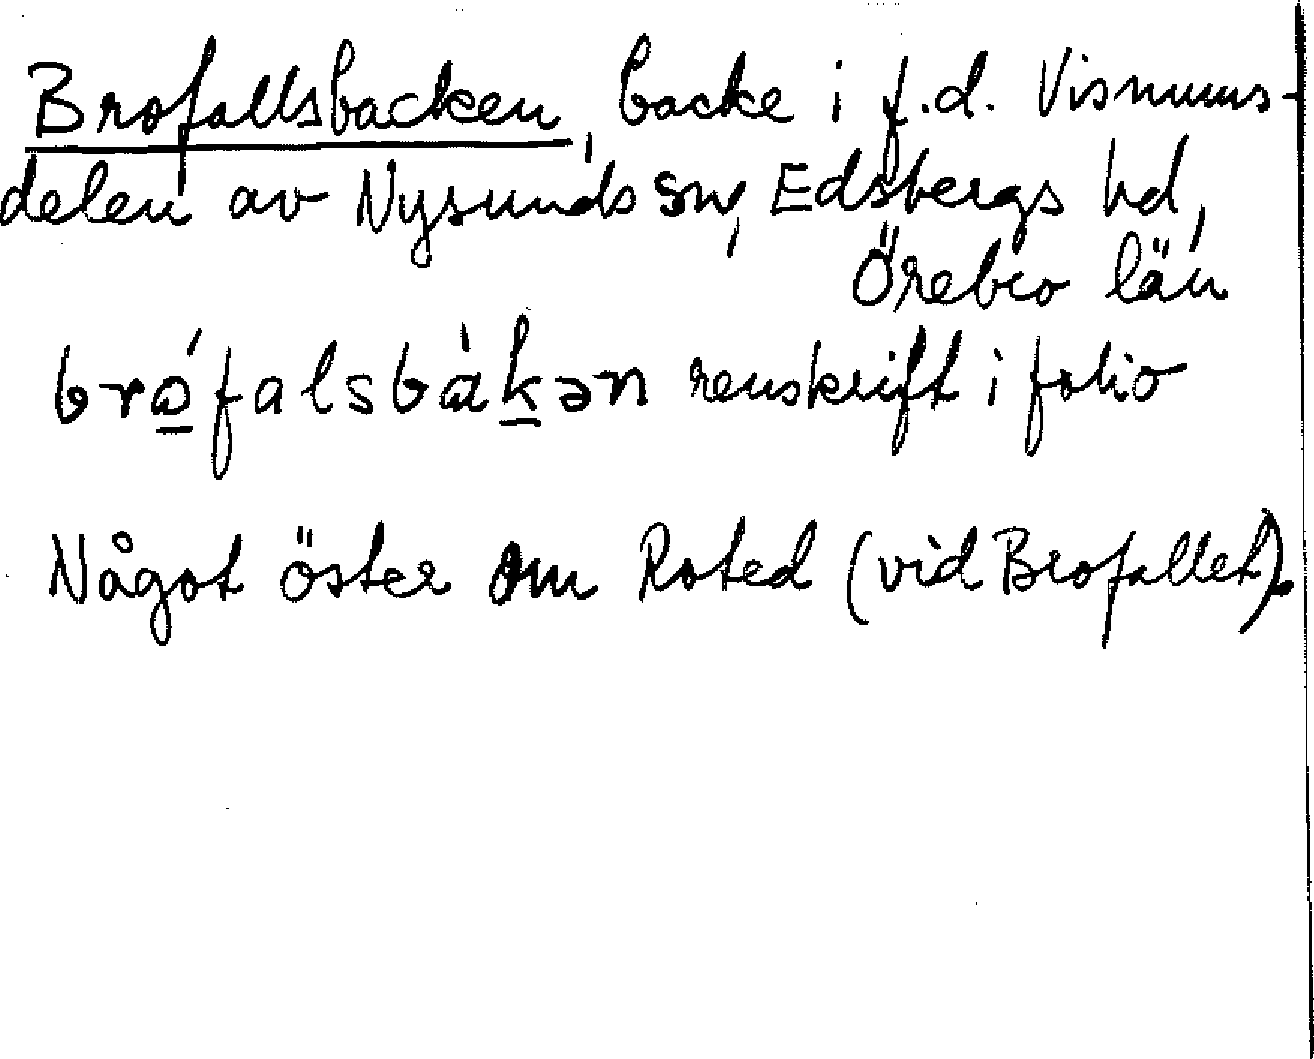 Brofallsbacken, backe i f.d. Visnums-
delen av Nysunds sn, Edsbergs hd,
Örebro län
bró̱falsbàḵən renskrift i folio
Något öster om Roted (vid Brofallet).